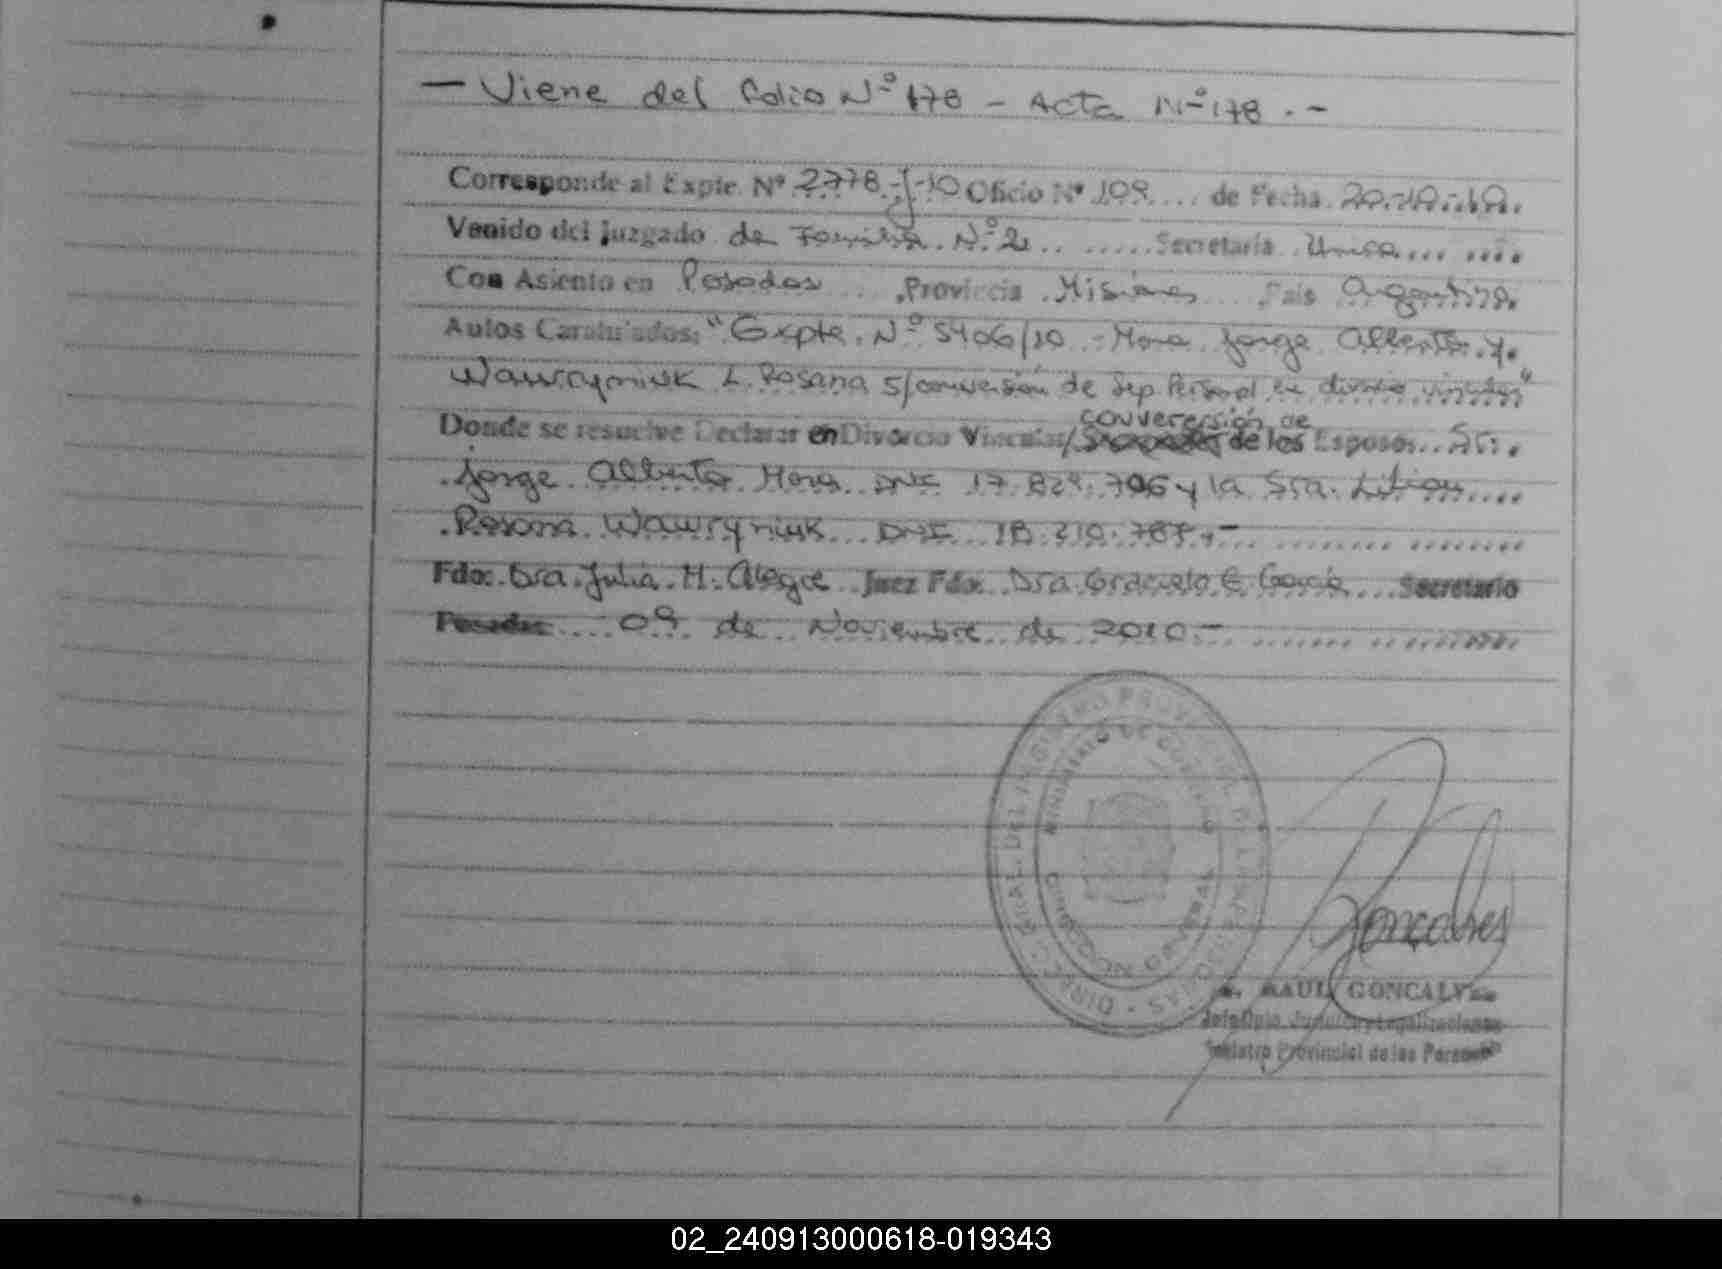 — Viene del folio Nº 178 — Acta Nº 178 . -
Corresponde al Expte. Nº 2778-J-10 Oficio Nº 109 .... de Fecha 20-10-10.
Venido del Juzgado de Familia Nº 2 ....... Secretaría Unica .......
Con Asiento en Posadas ... Provincia Misiones ... País Argentina.
Autos Caratulados: "Expte. Nº 5406/10 - Mora Jorge Alberto y
Wawryniuk L. Rosana s/conversión de Sep. Personal en divorcio vincular"
conversión de
Donde se resuelve Declarar en Divorcio Vincular/ de los Esposos Sr.
Jorge Alberto Mora DNI 17.829.706 y la Sra. Lilian
Rosana Wawryniuk DNI 18.210.787.-
Fdo: Dra. Julia M. Alegre Juez Fdo: Dra. Graciela E. García Secretario
Posadas 09 de Noviembre de 2010.-
DIREC. GRAL. DEL REGISTRO PROVINCIAL DE LAS PERSONAS
MINISTERIO DE GOBIERNO
Goncalves
RAUL GONCALVES
Jefe Dpto Jurídico y Legalizaciones
Registro Provincial de las Personas
02_240913000618-019343